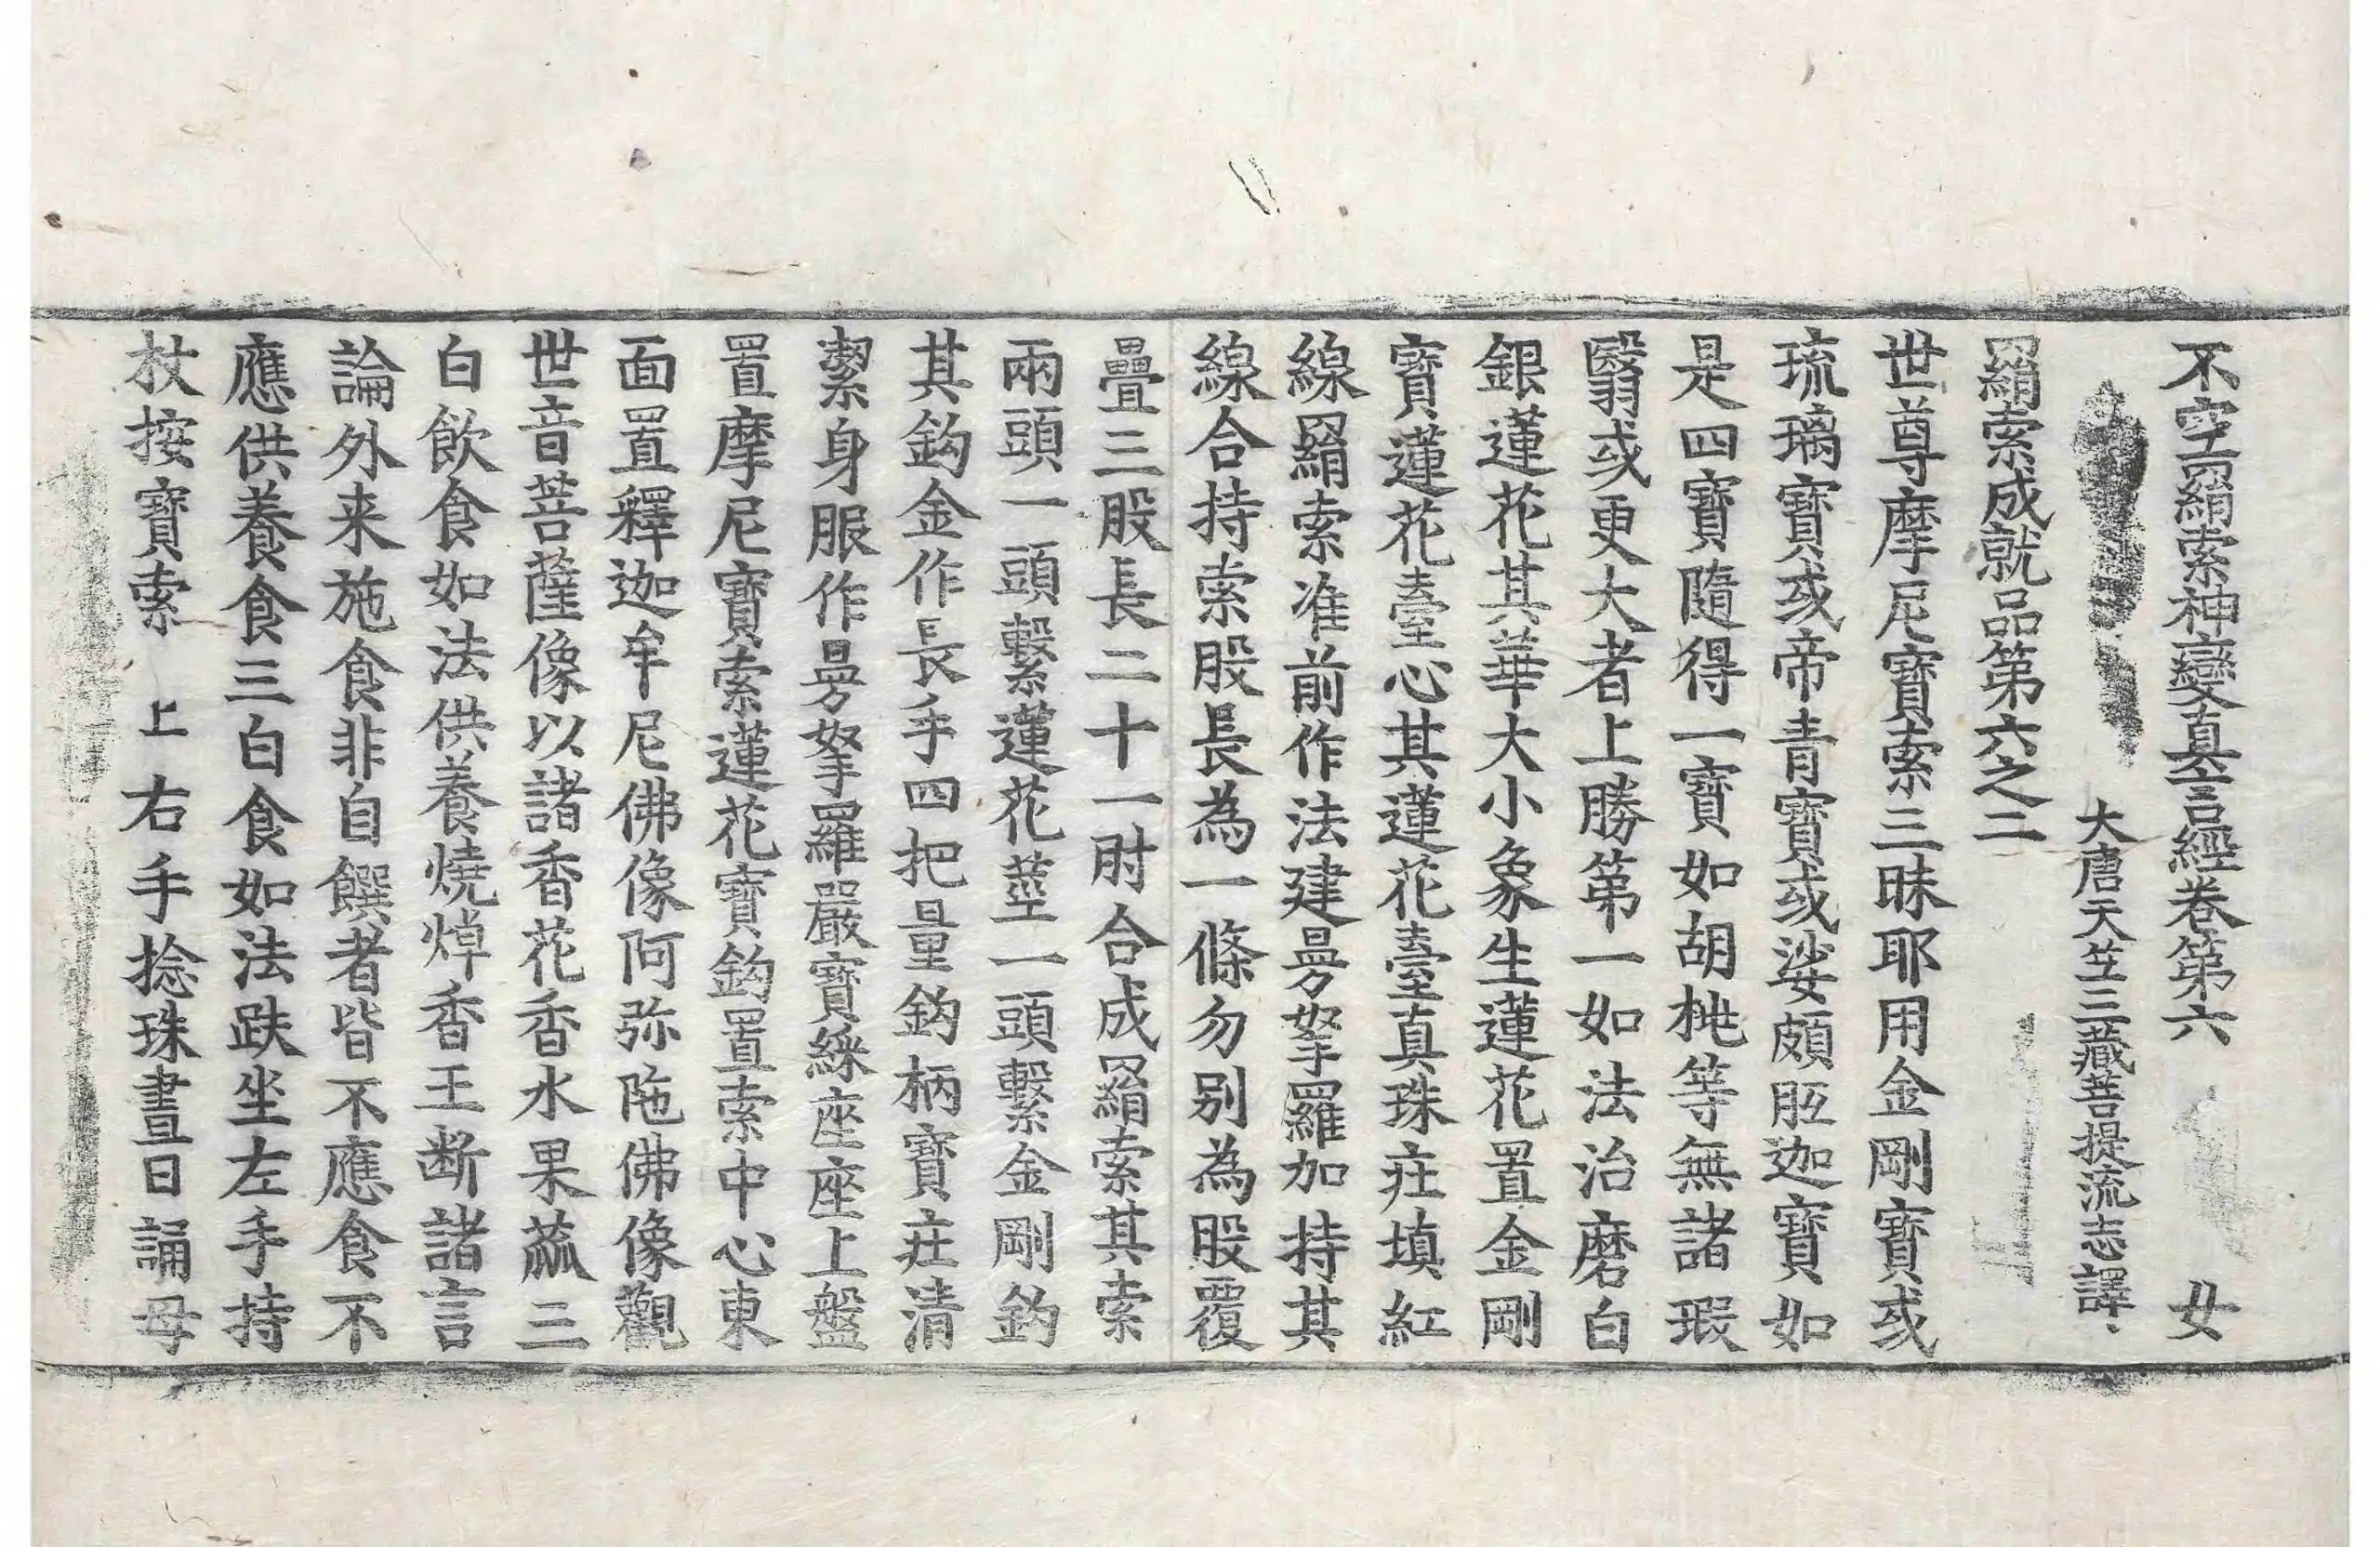 不空羂索神變真言經卷第六　女
大唐天竺三藏菩提流志譯
羂索成就品第六之二
世尊摩尼寶索三昧耶用金剛寶或
琉璃寶或帝青寶或娑頗胝迦寶如
是四寶隨得一寶如胡桃等無諸瑕
翳或更大者上勝第一如法治磨白
銀蓮花其華大小象生蓮花置金剛
寶蓮花臺心其蓮花臺真珠庄填紅
線羂索准前作法建曼拏羅加持其
線合持索股長為一條勿別為股覆
疊三股長二十一肘合成羂索其索
兩頭一頭繫蓮花莖一頭繫金剛鈎
其鈎金作長手四把量鈎柄寶庄清
潔身服作曼拏羅嚴寶綵座座上盤
置摩尼寶索蓮花寶鈎置索中心東
面置釋迦牟尼佛像阿弥陁佛像觀
世音菩薩像以諸香花香水果蓏三
白飲食如法供養燒焯香王断諸言
論外来施食非自饌者皆不應食不
應供養食三白食如法趺坐左手持
杖按寶索上右手捻珠晝日誦母